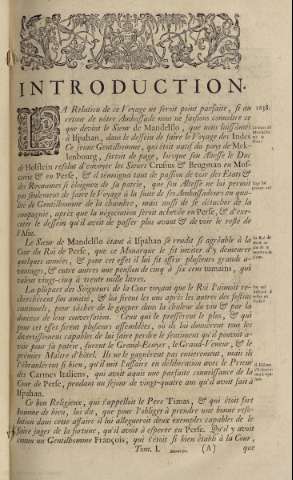 INTRODUCTION.
LA Relation de ce Voyage ne seroit point parfaite, si au
retour de nôtre Ambassade nous ne faisions connoistre ce
que devint le Sieur de Mandelslo, que nous laissâmes
à Ispahan, dans le dessein de faire le Voyage des Indes
Ce jeune Gentilhomme, qui étoit natif du pays de Mek-
lenbourg, sortit de page, lorsque son Altesse le Duc
de Holstein resolut d'envoyer les Sieurs Crusius & Brugman en Mos-
covie & en Perse, & il témoigna tant de passion de voir des Etats &
des Royaumes si éloignez de sa patrie, que son Altesse ne lui permit
pas seulement de faire le Voyage à la suite de ses Ambassadeurs en qua-
lité de Gentilhomme de la chambre, mais aussi de se détacher de la
compagnie, aprés que la negociation seroit achevée en Perse, & d'exe-
cuter le dessein qu'il avoit de passer plus avant & de voir le reste de
l'Asie.
Le Sieur de Mandelslo étant à Ispahan se rendit si agréable à la
Cour du Roi de Perse, que ce Monarque le fit inviter d'y demeurer
quelques années, & pour cet effet il lui fit offrir plusieurs grands a-
vantages, & entre autres une pension de cinq à six cens tumains, qui
valent vingt-cinq à trente mille livres.
La plûpart des Seigneurs de la Cour voyant que le Roi l'aimoit re-
cherchoient son amitié, & lui firent les uns aprés les autres des festins
continuels, pour tâcher de le gagner dans la chaleur du vin & par la
douceur de leur conversation. Ceux qui le pressérent le plus, & qui
pour cet effet firent plusieurs assemblées, où ils lui donnérent tous les
divertissemens capables de lui faire perdre le sentiment qu'il pouvoit a-
voir pour sa patrie, furent le Grand-Ecuyer, le Grand-Veneur, & le
premier Maître d'hôtel. Ils ne le gagnérent pas entiérement, mais ils
l'ébranlérent si bien, qu'il mit l'affaire en déliberation avec le Prieur
des Carmes Italiens, qui avoit aquis une parfaite connoissance de la
Cour de Perse, pendant un séjour de vingt-quatre ans qu'il avoit fait à
Ispahan.
Ce bon Religieux, qui s'appelloit le Pere Timas, & qui étoit fort
homme de bien, lui dit, que pour l'obliger à prendre une bonne reso-
lution dans cette affaire il lui allegueroit deux exemples capables de le
faire juger de la fortune, qu'il avoit à esperer en Perse. Qu'il y avoit
connu un Gentilhomme François, qui s'étoit si bien établi à la Cour,
Tom. I. (A) que
1638.